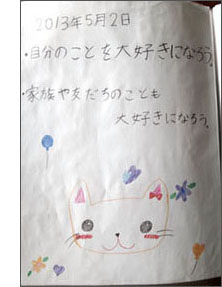 2013年5月2日
・自分のことを大好きになろう。
・家族や友だちのことも
大好きになろう。